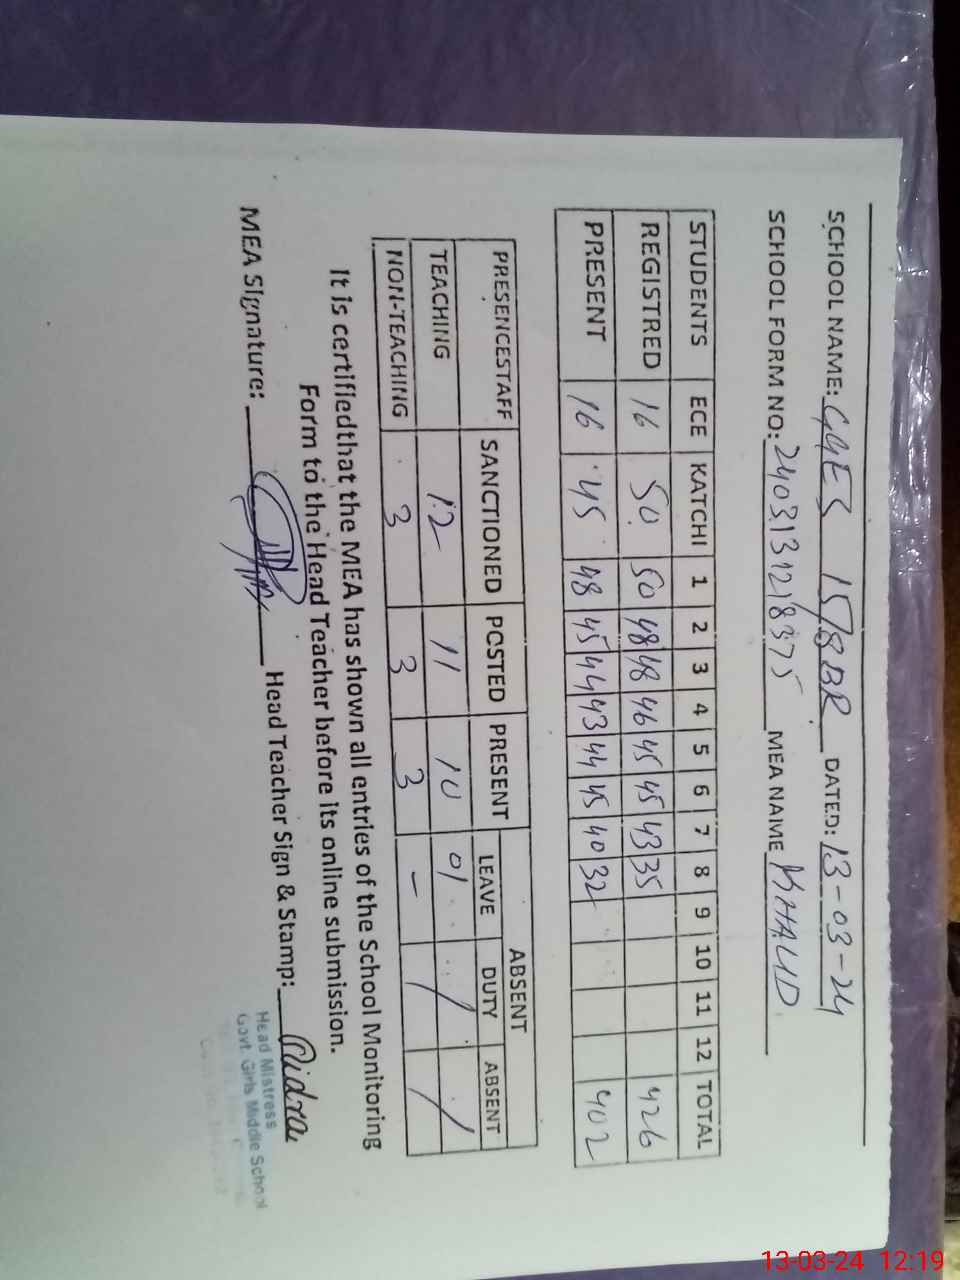 SCHOOL NAME: GGES 15/8BR DATED: 13-03-24
SCHOOL FORM NO: 2403131218375 MEA NAME KHALID
STUDENTS ECE KATCHI 1 2 3 4 5 6 7 8 9 10 11 12 TOTAL
REGISTRED 16 50 50 48 48 46 45 45 43 35 426
PRESENT 16 45 48 45 44 43 44 45 40 32 402
PRESENCESTAFF SANCTIONED POSTED PRESENT ABSENT
LEAVE DUTY ABSENT
TEACHING 12 11 10 01 / /
NON-TEACHING 3 3 3 -
It is certifiedthat the MEA has shown all entries of the School Monitoring
Form to the Head Teacher before its online submission.
MEA Signature: Head Teacher Sign & Stamp: Sidra
Head Mistress
Govt. Girls Middle School
13-03-24 12:19